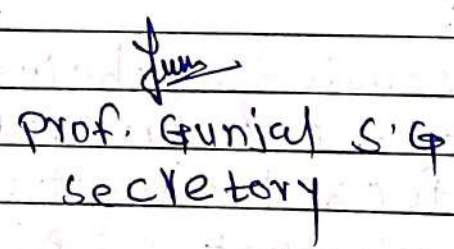 Prof. Gunjal S.G
Secretory